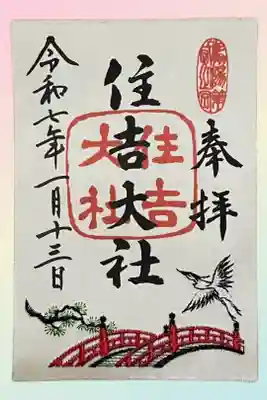 奉拝
住吉大社
住吉大社
令和七年一月十三日